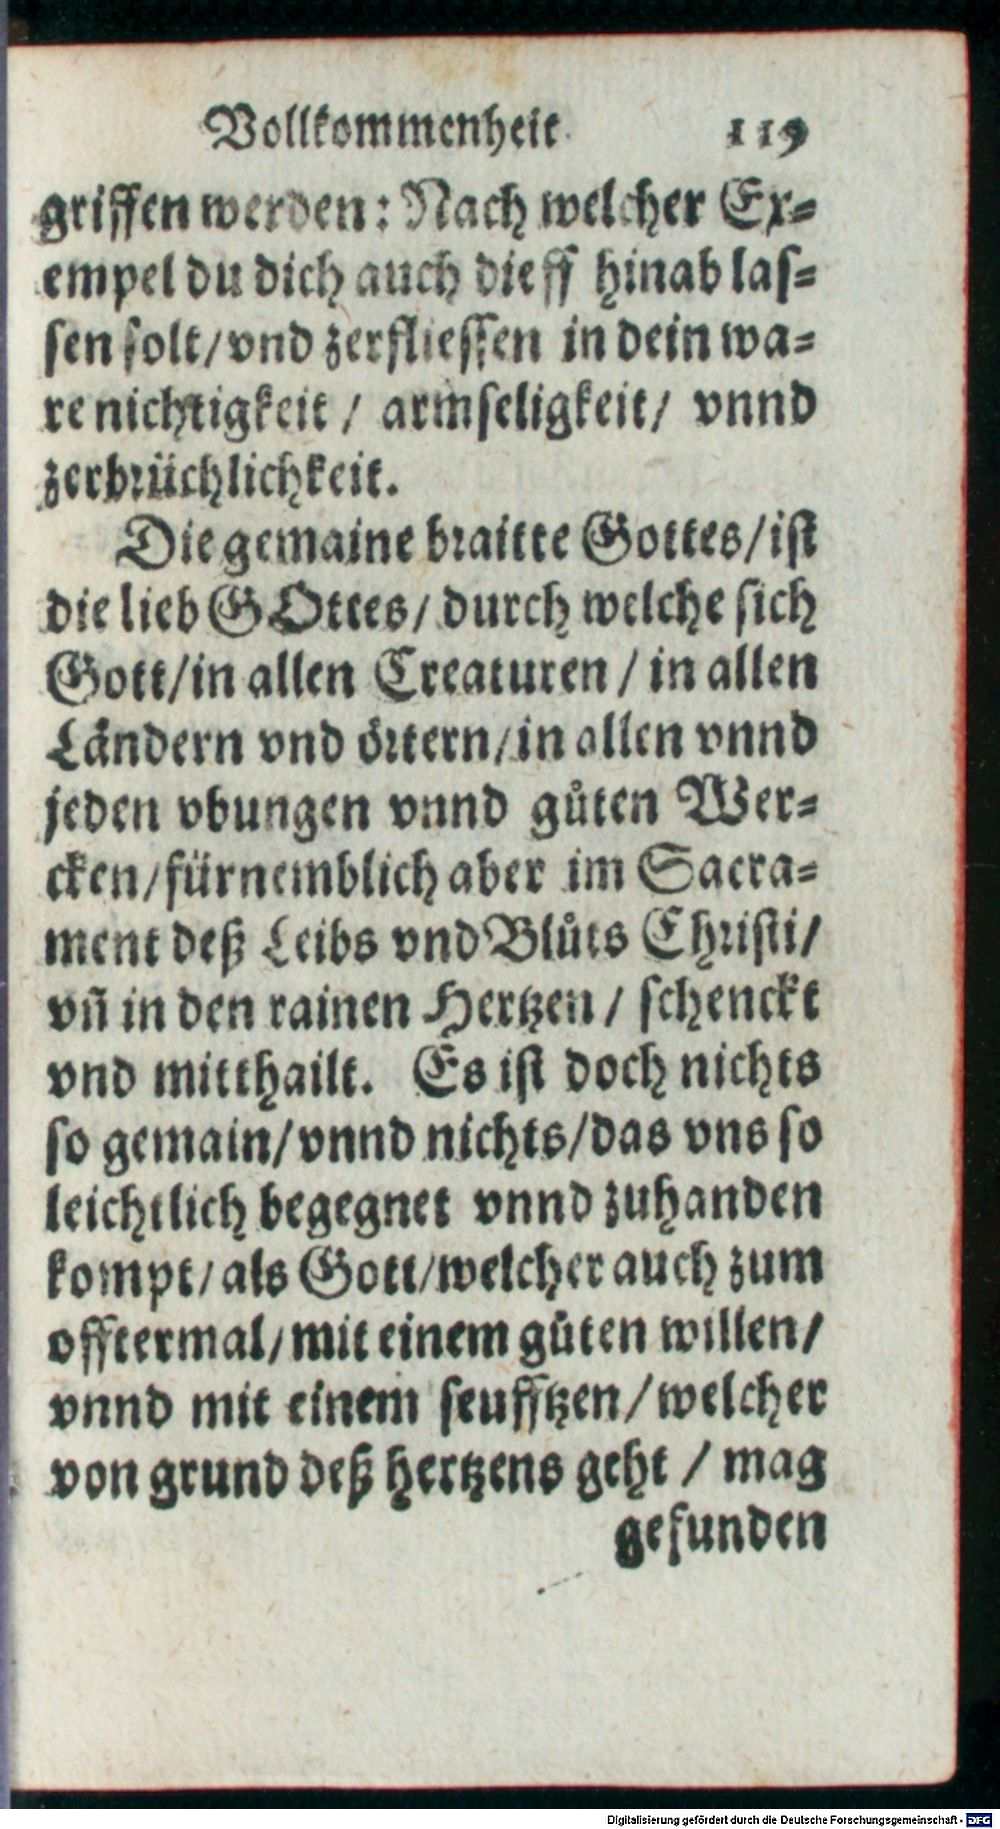 Vollkommenheit. 119
griffen werden: Nach welcher Ex-
empel du dich auch dieff hinab las-
sen solt/vnd zerfliessen in dein wa-
re nichtigkeit / armseligkeit/ vnnd
zerbrüchlichkeit.
Die gemaine braitte Gottes/ist
die lieb GOttes/ durch welche sich
Gott/in allen Creaturen / in allen
Ländern vnd örtern/in allen vnnd
jeden vbungen vnnd gůten Wer-
cken/fürnemblich aber im Sacra-
ment deß Leibs vnd Blůts Christi/
vñ in den rainen Hertzen / schenckt
vnd mitthailt. Es ist doch nichts
so gemain/vnnd nichts/das vns so
leichtlich begegnet vnnd zuhanden
kompt/als Gott/welcher auch zum
offtermal/mit einem gůten willen/
vnnd mit einem seufftzen/welcher
von grund deß hertzens geht / mag
gefunden
Digitalisierung gefördert durch die Deutsche Forschungsgemeinschaft - DFG